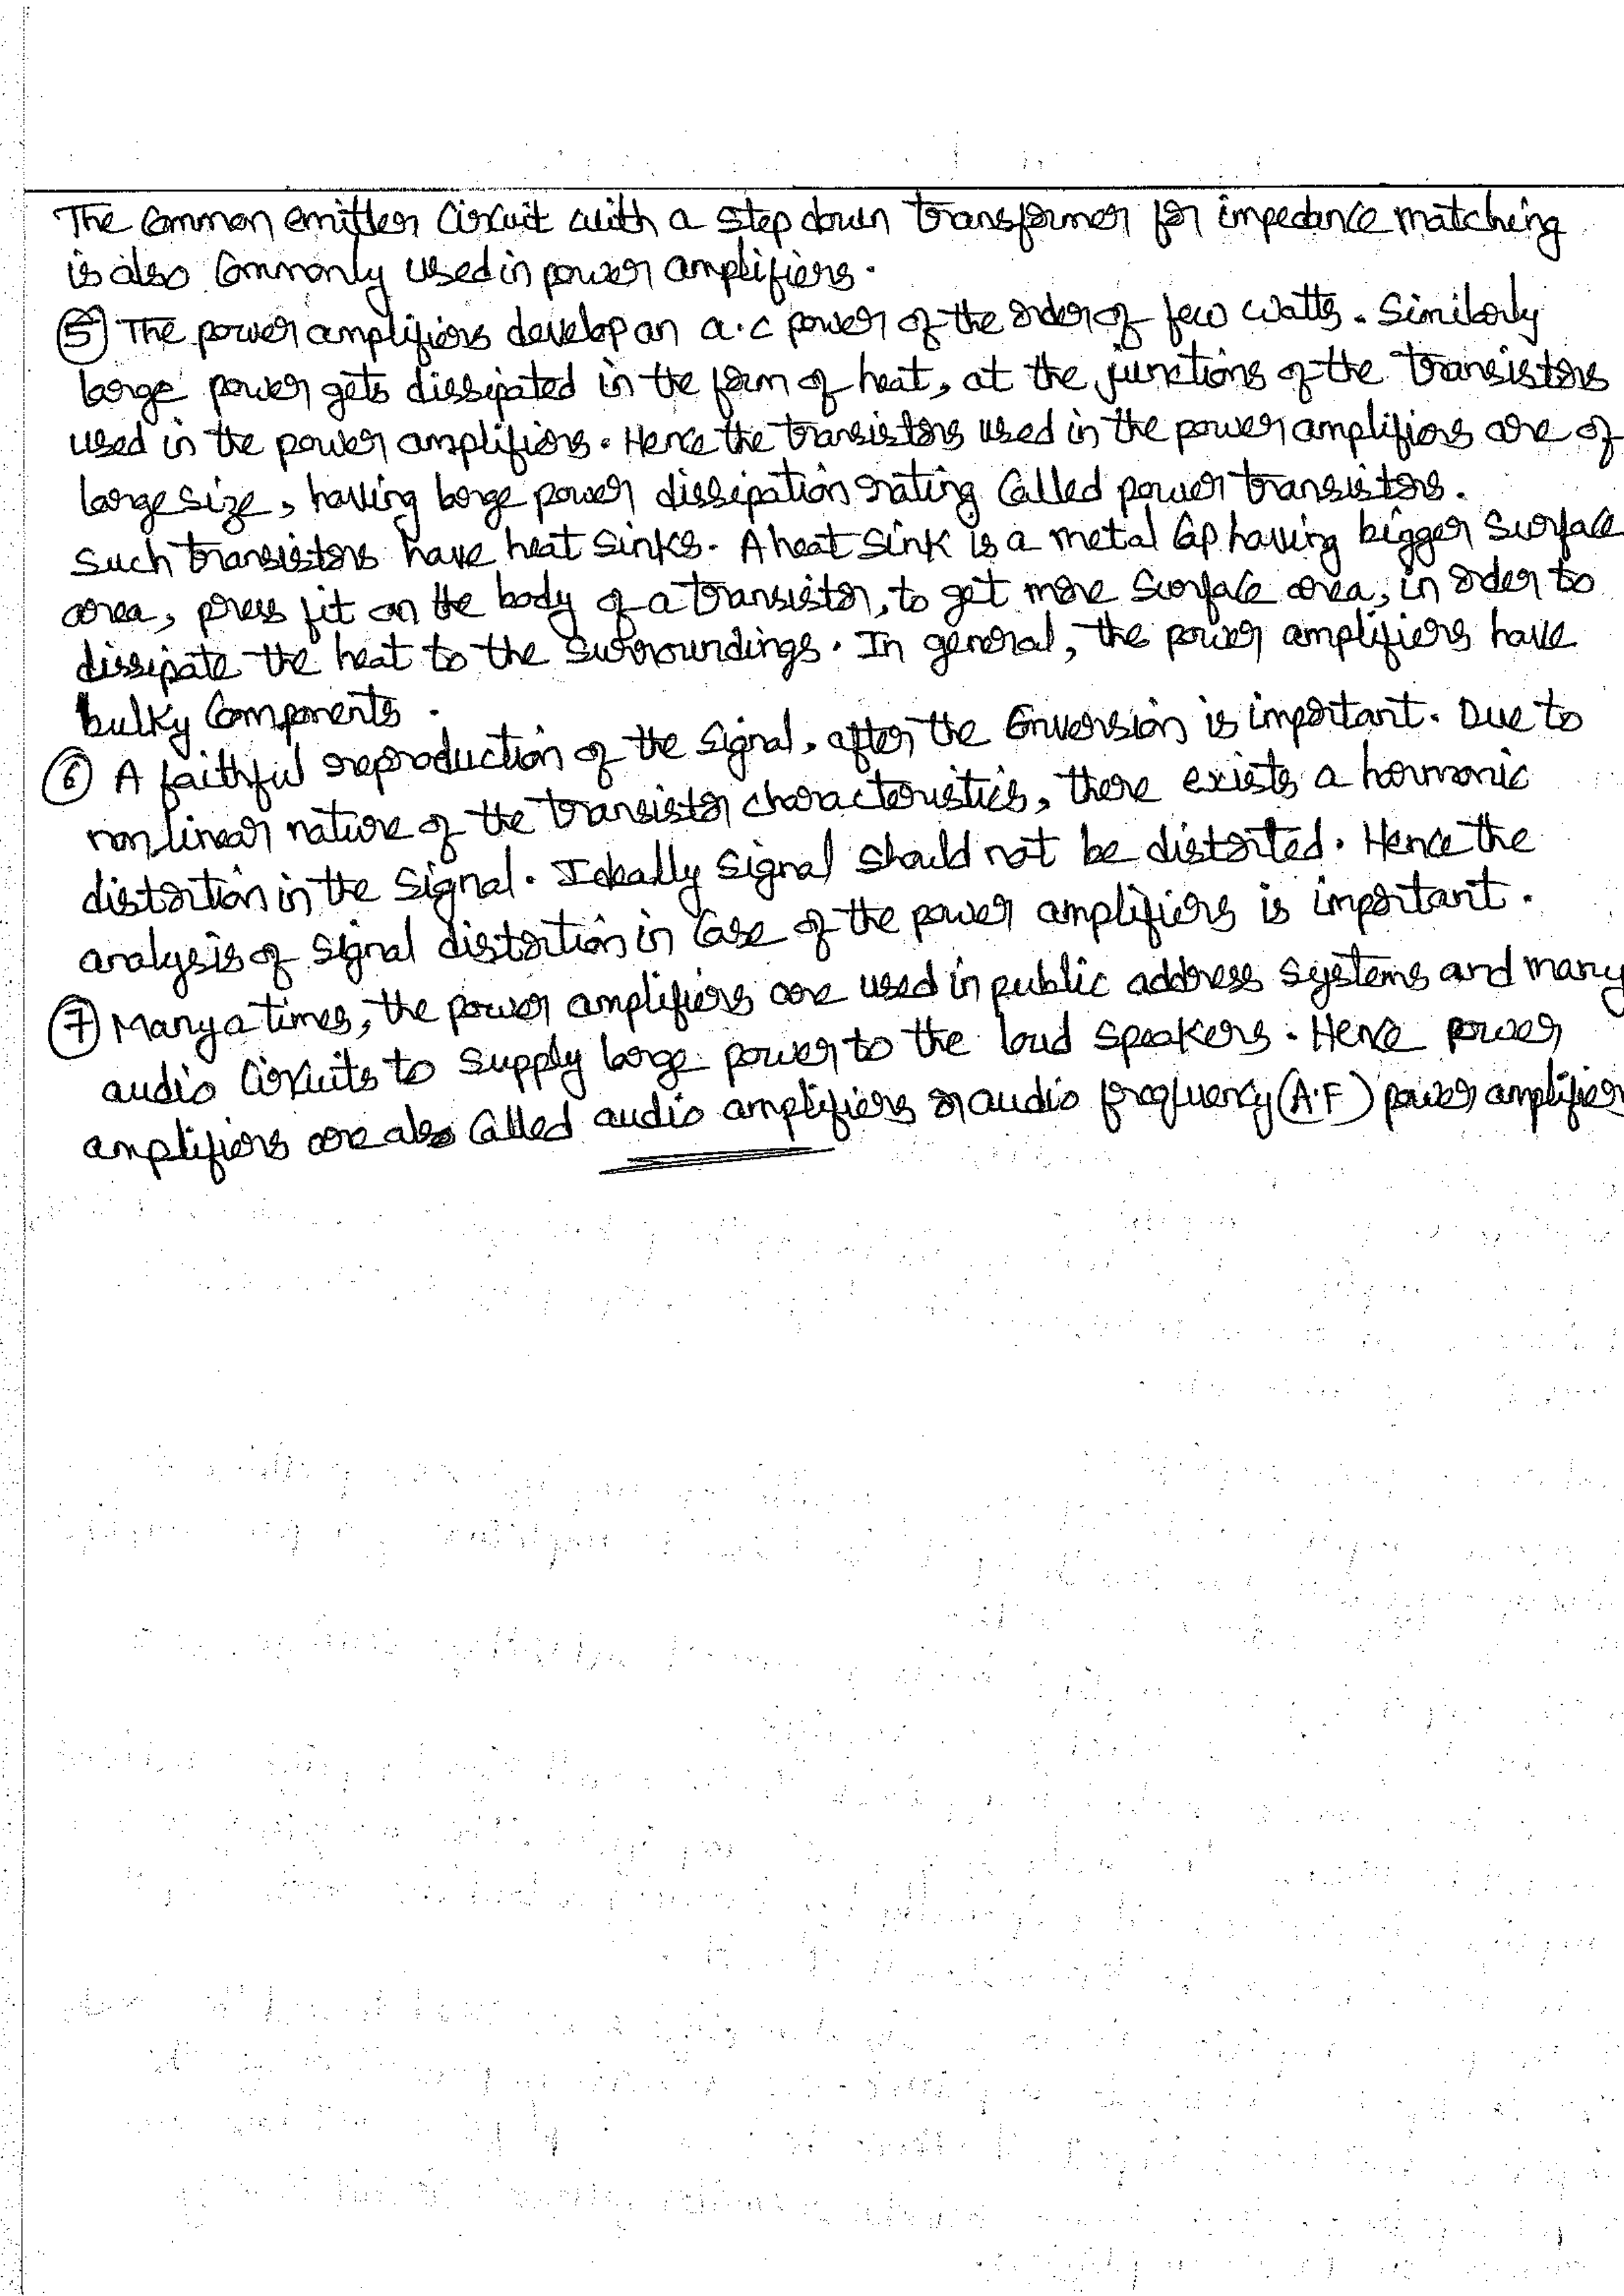 The common emitter circuit with a step down transformer for impedance matching
is also commonly used in power amplifiers.
⑤ The power amplifiers develop an a.c power of the order of few watts. Similarly
large power gets dissipated in the form of heat, at the junctions of the transistors
used in the power amplifiers. Hence the transistors used in the power amplifiers are of
large size, having large power dissipation rating called power transistors.
Such transistors have heat sinks. A heat sink is a metal cap having bigger surface
area, press fit on the body of a transistor, to get more surface area, in order to
dissipate the heat to the surroundings. In general, the power amplifiers have
bulky components.
⑥ A faithful reproduction of the signal, after the conversion is important. Due to
non linear nature of the transistor characteristics, there exists a harmonic
distortion in the signal. Ideally signal should not be distorted. Hence the
analysis of signal distortion in case of the power amplifiers is important.
⑦ Many a times, the power amplifiers are used in public address systems and many
audio circuits to supply large power to the loud speakers. Hence power
amplifiers are also called audio amplifiers or audio frequency (A.F) power amplifiers